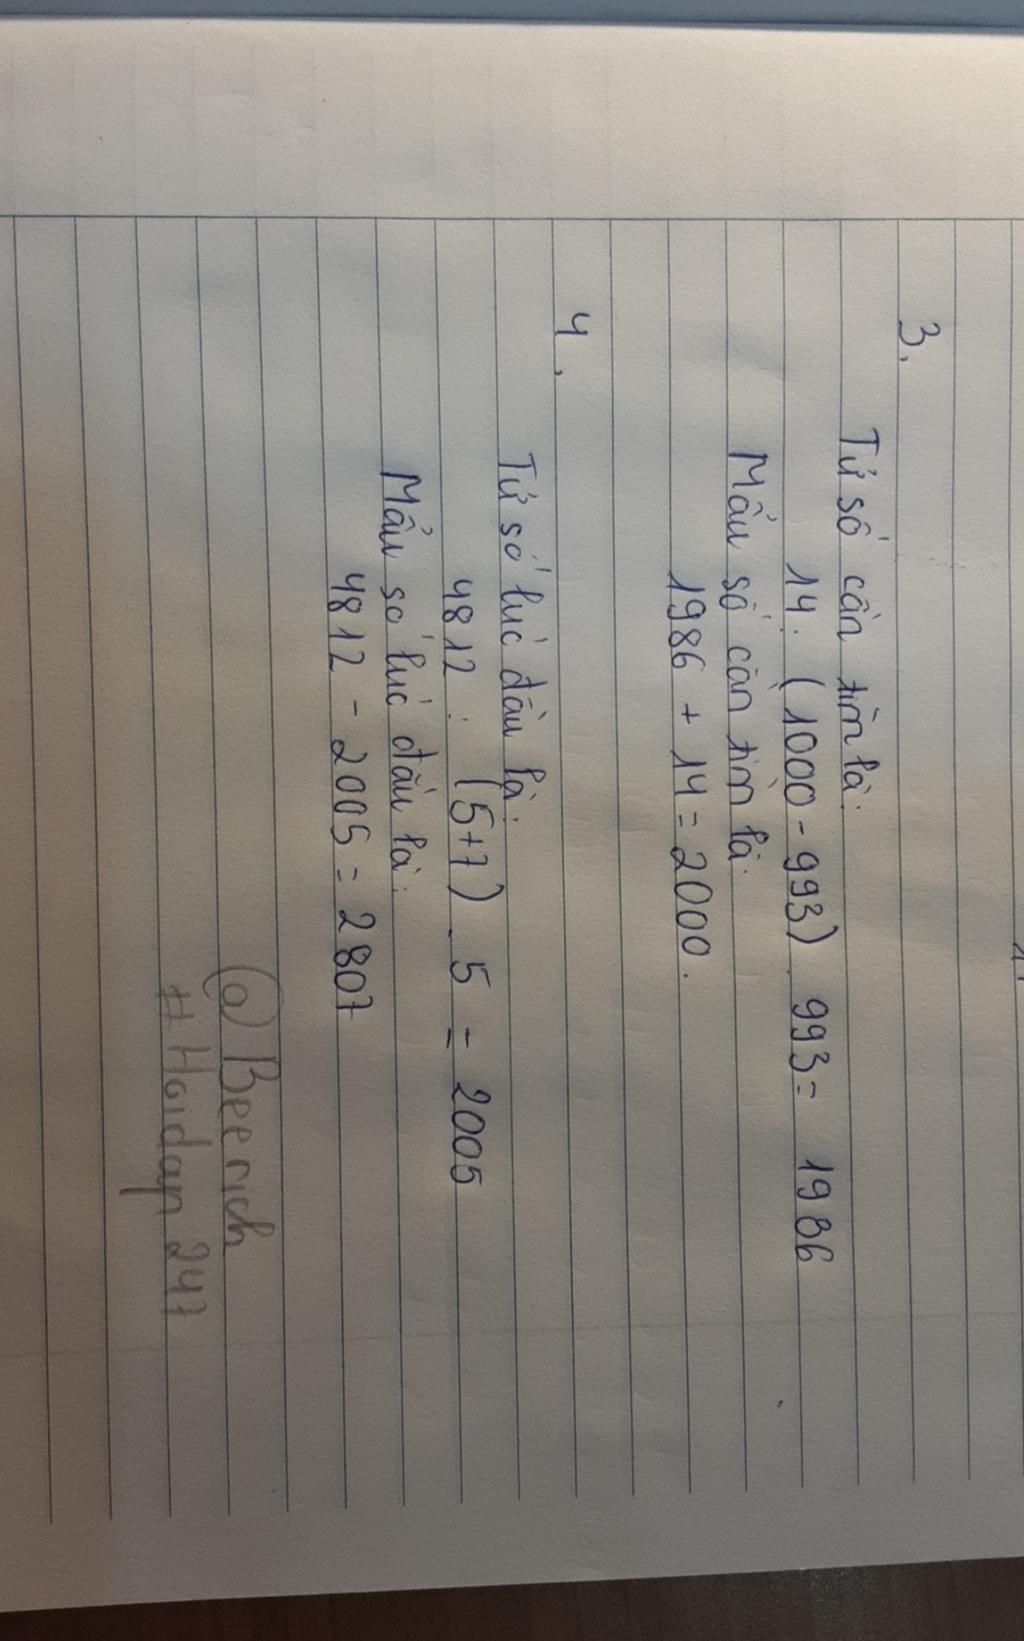 3.
Tử số cần tìm là:
14: (1000-993). 993= 1986
Mẫu số cần tìm là:
1986 + 14 = 2000.
4.
Tử số lúc đầu là:
4812 : (5+7) . 5 = 2005
Mẫu số lúc đầu là:
4812 - 2005 = 2807
@ Beerich
# Hoidap 247